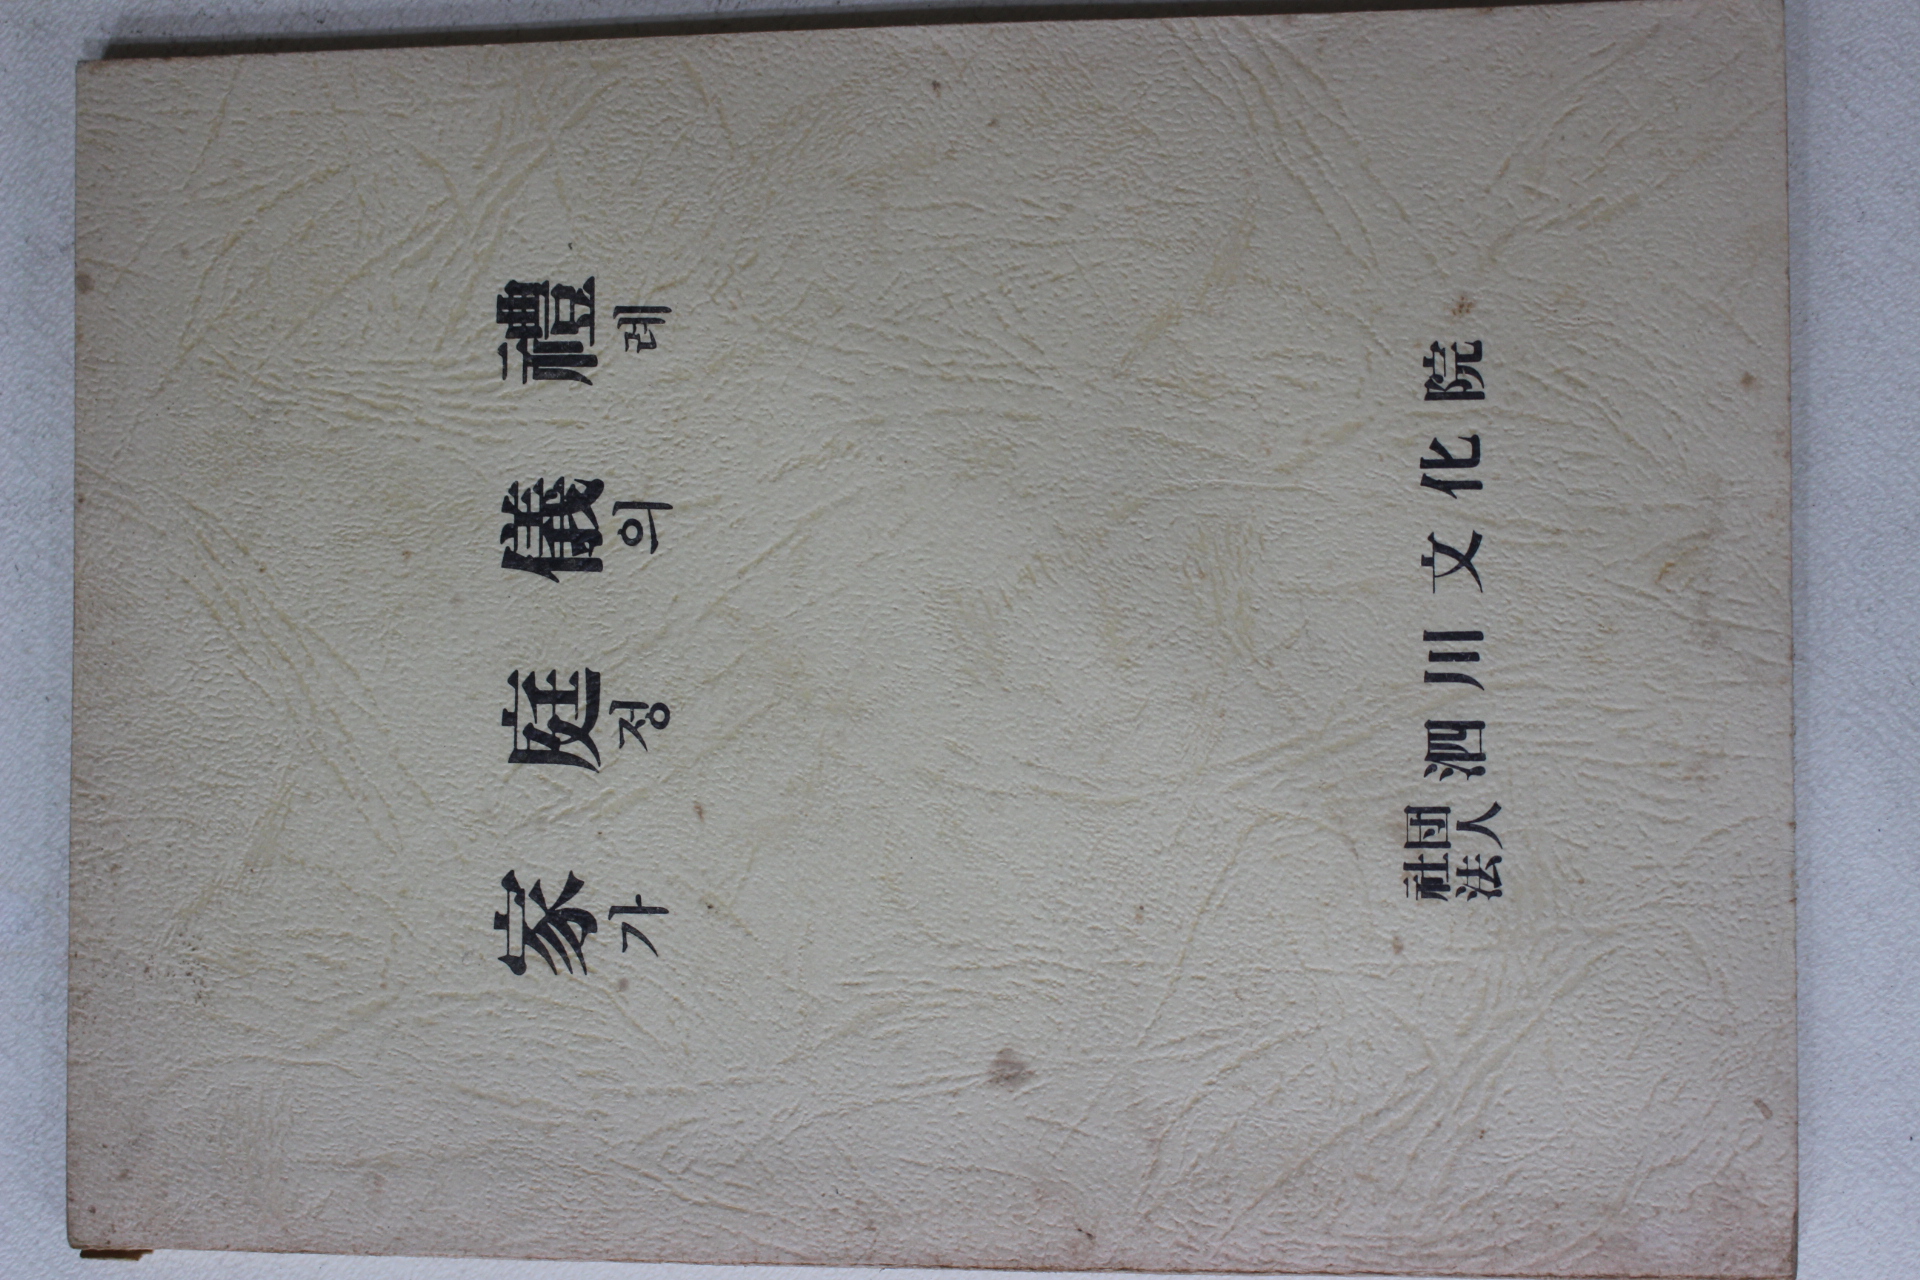 家庭儀禮
가정의례
社団法人 泗川文化院